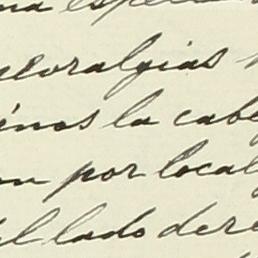 na espe
neuralgias
énos la cabe
on por local
el lado dere